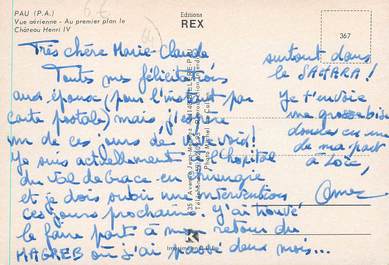 PAU (P.A.)
Vue aérienne - Au premier plan le
Château Henri IV
Editions
REX
367
Très chère Marie-Claude
Toutes mes félicitations
aux époux (pour l'instant par
carte postale) mais j'espère
un de ces jours de te voir!
Je suis actuellement à l'hôpital
du Val de Grâce en chirurgie
et je dois subir une intervention
ces jours prochains. J'ai trouvé
le faire part à mon retour du
MAGREB où j'ai passé deux mois...
surtout dans
le SAHARA!
Je t'envoie
une grosse bise
de ma part
à toi,